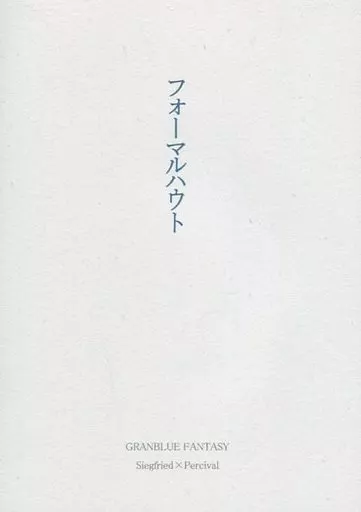 フォーマルハウト
GRANBLUE FANTASY
Siegfried×Percival